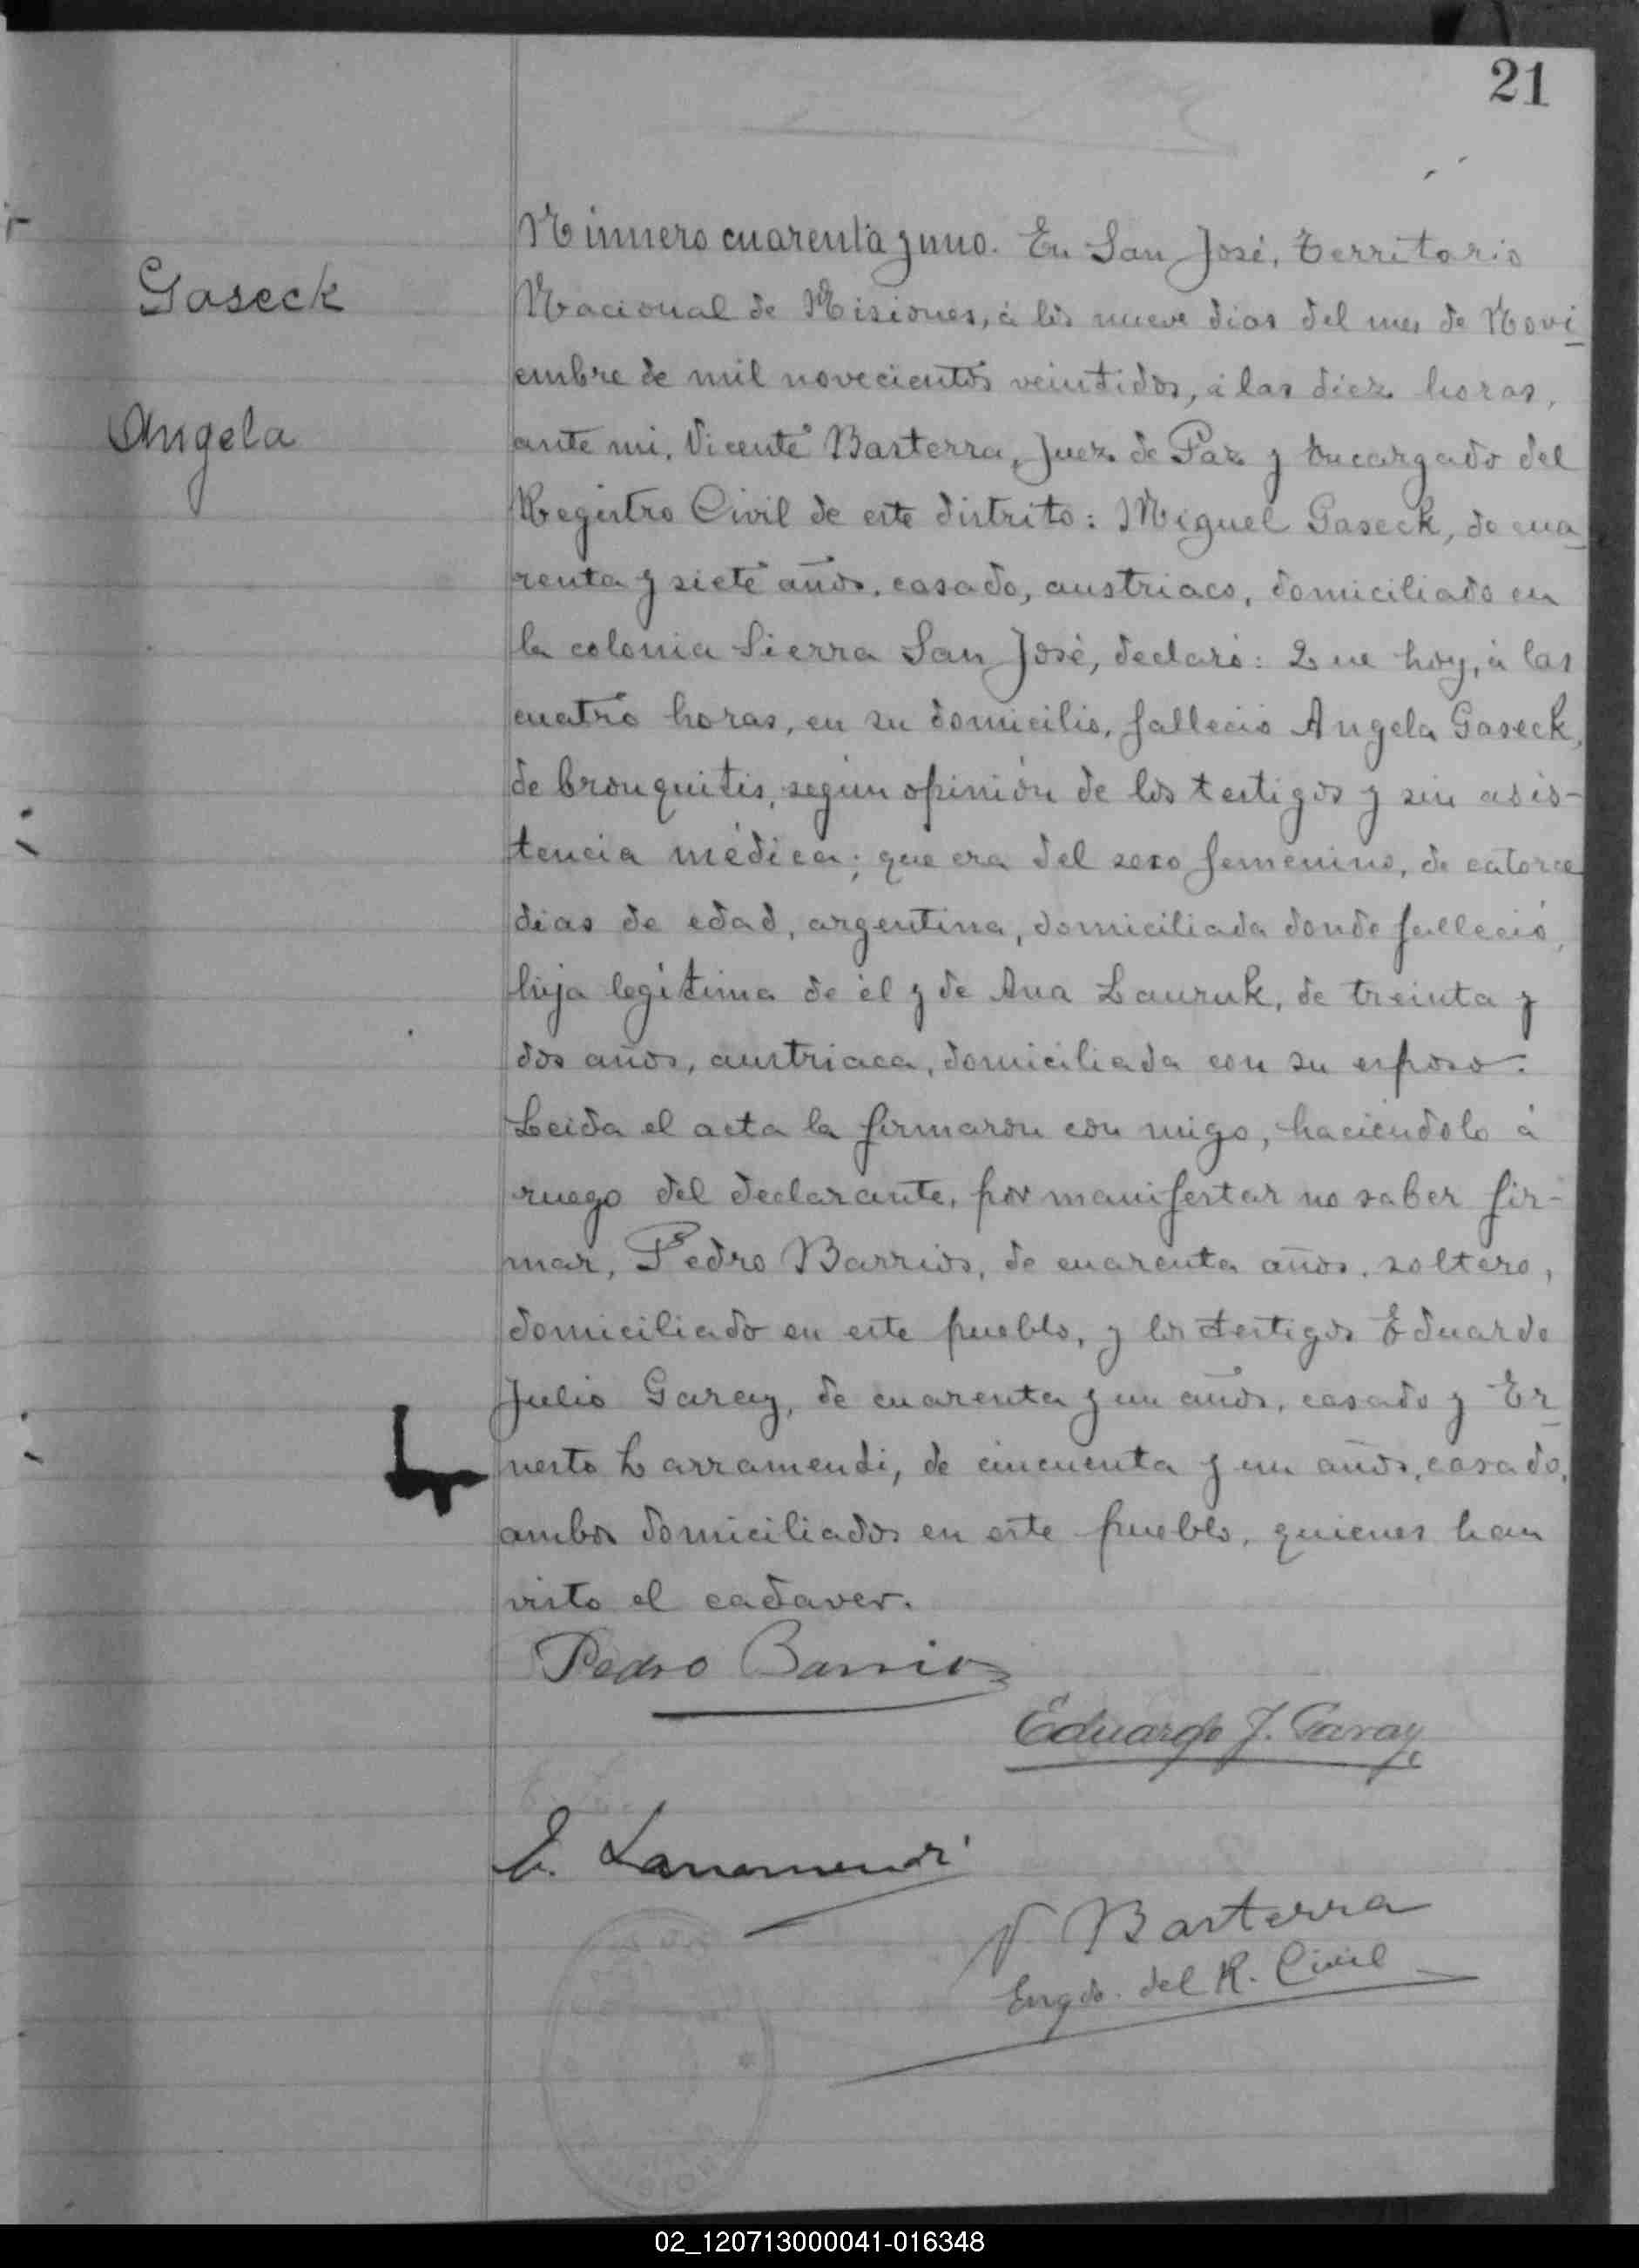 21
Gaseck
Angela
Número cuarenta y uno. En San José, Territorio
Nacional de Misiones, á los nueve dias del mes de Novi
embre de mil novecientos veintidos, á las diez horas,
ante mi, Vicente Basterra, Juez de Paz y Encargado del
Registro Civil de este distrito: Miguel Gaseck, de cua
renta y siete años, casado, austriaco, domiciliado en
la colonia Sierra San José, declaró: Que hoy, á las
cuatro horas, en su domicilio, falleció Angela Gaseck,
de bronquitis, según opinión de los testigos y sin asis-
tencia médica; que era del sexo femenino, de catorce
dias de edad, argentina, domiciliada donde falleció,
hija legítima de él y de Ana Lauruk, de treinta y
dos años, austriaca, domiciliada con su esposo.
Leida el acta la firmaron con migo, haciéndolo á
ruego del declarante, por manifestar no saber fir-
mar, Pedro Barrios, de cuarenta años, soltero,
domiciliado en este pueblo, y los testigos Eduardo
Julio Garay, de cuarenta y un años, casado y Er
nesto Larramendi, de cincuenta y un años, casado,
ambos domiciliados en este pueblo, quienes han
visto el cadaver.
Pedro Barrios
Eduardo J. Garay
E. Larramendi
V Basterra
Engdo. del R. Civil
02_120713000041-016348